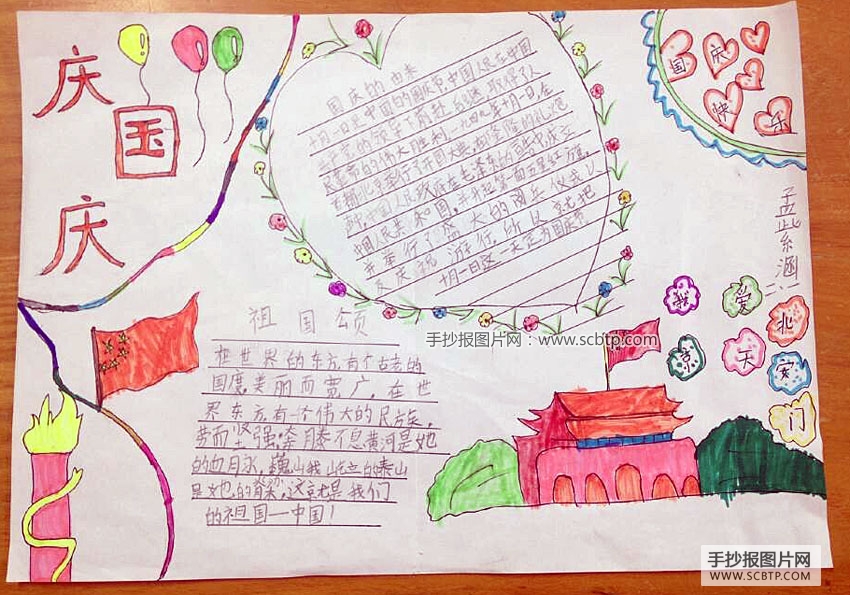 庆
国
庆
国庆的由来
十月一日是中国的国庆节,中国人民在中国
共产党的领导下前赴后继,取得了人
民革命的伟大胜利一九四九年十月一日在
首都北京举行了开国大典,在隆隆的礼炮
声中,中国人民
中国人民共和国,并升起第一面五星红旗。
并举行了盛大的阅兵仪式以
及庆祝游行。所以就把
十月一日这一天定为国庆节
国庆
快乐
孟紫涵
我爱北
京天安
门
手抄报图片网:www.scbtp.com
祖国颂
在世界的东方有个古老的
国度美丽而宽广,在世
界东方有一个伟大的民族,
勤劳而坚强,奔腾不息黄河是她
的血脉,巍峨屹立的泰山
是她的脊梁,这就是我们
的祖国一中国!
手抄报图片网
WWW.SCBTP.COM